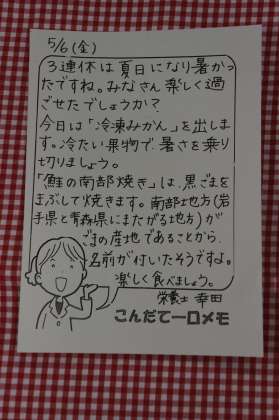 5/6(金)
3連休は夏日になり暑かっ
たですね。みなさん楽しく過
ごせたでしょうか？
今日は「冷凍みかん」を出しま
す。冷たい果物で暑さを乗り
切りましょう。
「鮭の南部焼き」は、黒ごまを
まぶして焼きます。南部地方(岩
手県と青森県にまたがる地方)が
ごまの産地であることから、
名前が付いたそうですよ。
楽しく食べましょう。
栄養士 幸田
こんだて一口メモ